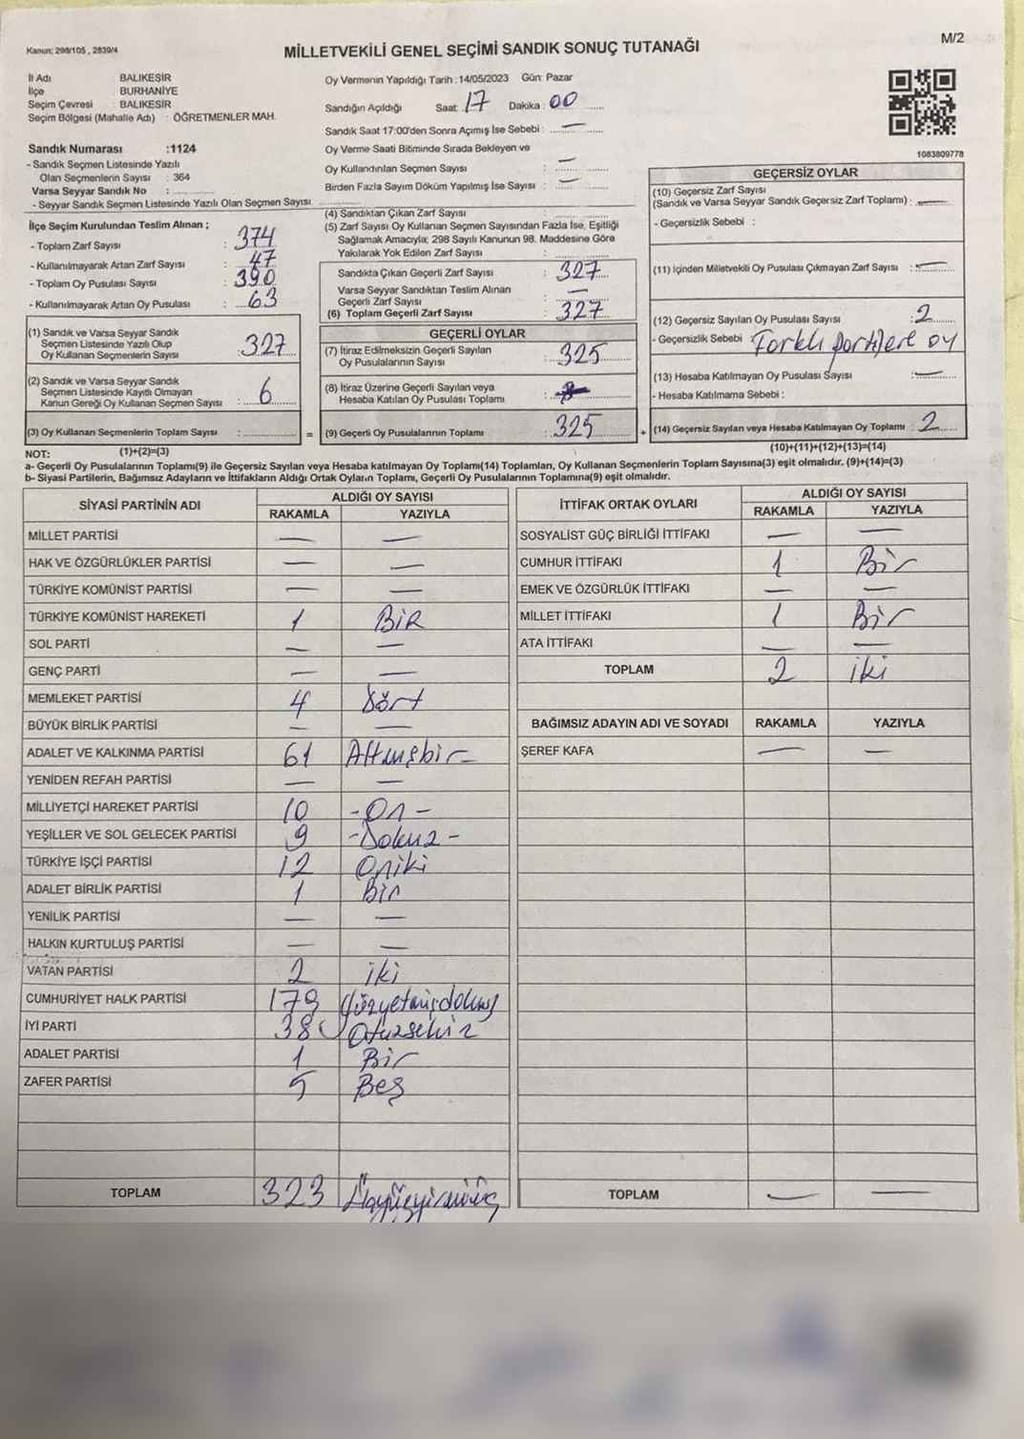 Kanun: 298/105 , 2839/4
MİLLETVEKİLİ GENEL SEÇİMİ SANDIK SONUÇ TUTANAĞI
M/2
İl Adı BALIKESİR
İlçe BURHANİYE
Seçim Çevresi BALIKESİR
Seçim Bölgesi (Mahalle Adı) : ÖĞRETMENLER MAH.
Sandık Numarası :1124
- Sandık Seçmen Listesinde Yazılı
Olan Seçmenlerin Sayısı : 364
Varsa Seyyar Sandık No :
- Seyyar Sandık Seçmen Listesinde Yazılı Olan Seçmen Sayısı
Oy Vermenin Yapıldığı Tarih :14/05/2023 Gün: Pazar
Sandığın Açıldığı Saat: 17 Dakika : 00
Sandık Saat 17:00'den Sonra Açımış İse Sebebi : —
Oy Verme Saati Bitiminde Sırada Bekleyen ve
Oy Kullandırılan Seçmen Sayısı : —
Birden Fazla Sayım Döküm Yapılmış İse Sayısı : —
1083809778
İlçe Seçim Kurulundan Teslim Alınan ;
- Toplam Zarf Sayısı : 374
- Kullanılmayarak Artan Zarf Sayısı : 47
- Toplam Oy Pusulası Sayısı : 390
- Kullanılmayarak Artan Oy Pusulası : 63
(1) Sandık ve Varsa Seyyar Sandık
Seçmen Listesinde Yazılı Olup
Oy Kullanan Seçmenlerin Sayısı : 327
(2) Sandık ve Varsa Seyyar Sandık
Seçmen Listesinde Kayıtlı Olmayan
Kanun Gereği Oy Kullanan Seçmen Sayısı : 6
(3) Oy Kullanan Seçmenlerin Toplam Sayısı : =
(1)+(2)=(3)
(4) Sandıktan Çıkan Zarf Sayısı :
(5) Zarf Sayısı Oy Kullanan Seçmen Sayısından Fazla İse, Eşitliği
Sağlamak Amacıyla; 298 Sayılı Kanunun 98. Maddesine Göre
Yakılarak Yok Edilen Zarf Sayısı :
Sandıkta Çıkan Geçerli Zarf Sayısı : 327
Varsa Seyyar Sandıktan Teslim Alınan
Geçerli Zarf Sayısı : —
(6) Toplam Geçerli Zarf Sayısı : 327
GEÇERLİ OYLAR
(7) İtiraz Edilmeksizin Geçerli Sayılan
Oy Pusulalarının Sayısı : 325
(8) İtiraz Üzerine Geçerli Sayılan veya
Hesaba Katılan Oy Pusulası Toplamı :
(9) Geçerli Oy Pusulalarının Toplamı : 325 +
GEÇERSİZ OYLAR
(10) Geçersiz Zarf Sayısı
(Sandık ve Varsa Seyyar Sandık Geçersiz Zarf Toplamı) : —
- Geçersizlik Sebebi :
(11) İçinden Milletvekili Oy Pusulası Çıkmayan Zarf Sayısı : —
(12) Geçersiz Sayılan Oy Pusulası Sayısı : 2
- Geçersizlik Sebebi : Farklı partilere oy
(13) Hesaba Katılmayan Oy Pusulası Sayısı : —
- Hesaba Katılmama Sebebi :
(14) Geçersiz Sayılan veya Hesaba Katılmayan Oy Toplamı : 2
(10)+(11)+(12)+(13)=(14)
NOT:
a- Geçerli Oy Pusulalarının Toplamı(9) ile Geçersiz Sayılan veya Hesaba katılmayan Oy Toplamı(14) Toplamları, Oy Kullanan Seçmenlerin Toplam Sayısına(3) eşit olmalıdır. (9)+(14)=(3)
b- Siyasi Partilerin, Bağımsız Adayların ve İttifakların Aldığı Ortak Oyların Toplamı, Geçerli Oy Pusulalarının Toplamına(9) eşit olmalıdır.
SİYASİ PARTİNİN ADI ALDIĞI OY SAYISI
RAKAMLA YAZIYLA
MİLLET PARTİSİ — —
HAK VE ÖZGÜRLÜKLER PARTİSİ — —
TÜRKİYE KOMÜNİST PARTİSİ — —
TÜRKİYE KOMÜNİST HAREKETİ 1 BİR
SOL PARTİ — —
GENÇ PARTİ — —
MEMLEKET PARTİSİ 4 Dört
BÜYÜK BİRLİK PARTİSİ — —
ADALET VE KALKINMA PARTİSİ 61 Altmışbir
YENİDEN REFAH PARTİSİ — —
MİLLİYETÇİ HAREKET PARTİSİ 10 -On-
YEŞİLLER VE SOL GELECEK PARTİSİ 9 -Dokuz-
TÜRKİYE İŞÇİ PARTİSİ 12 Oniki
ADALET BİRLİK PARTİSİ 1 Bir
YENİLİK PARTİSİ — —
HALKIN KURTULUŞ PARTİSİ — —
VATAN PARTİSİ 2 iki
CUMHURİYET HALK PARTİSİ 179 Yüzyetmişdokuz
İYİ PARTİ 38 Otuzsekiz
ADALET PARTİSİ 1 Bir
ZAFER PARTİSİ 5 Beş
TOPLAM 323 Üçyüzyirmiüç
İTTİFAK ORTAK OYLARI ALDIĞI OY SAYISI
RAKAMLA YAZIYLA
SOSYALİST GÜÇ BİRLİĞİ İTTİFAKI — —
CUMHUR İTTİFAKI 1 Bir
EMEK VE ÖZGÜRLÜK İTTİFAKI — —
MİLLET İTTİFAKI 1 Bir
ATA İTTİFAKI — —
TOPLAM 2 iki
BAĞIMSIZ ADAYIN ADI VE SOYADI RAKAMLA YAZIYLA
ŞEREF KAFA — —
TOPLAM — —